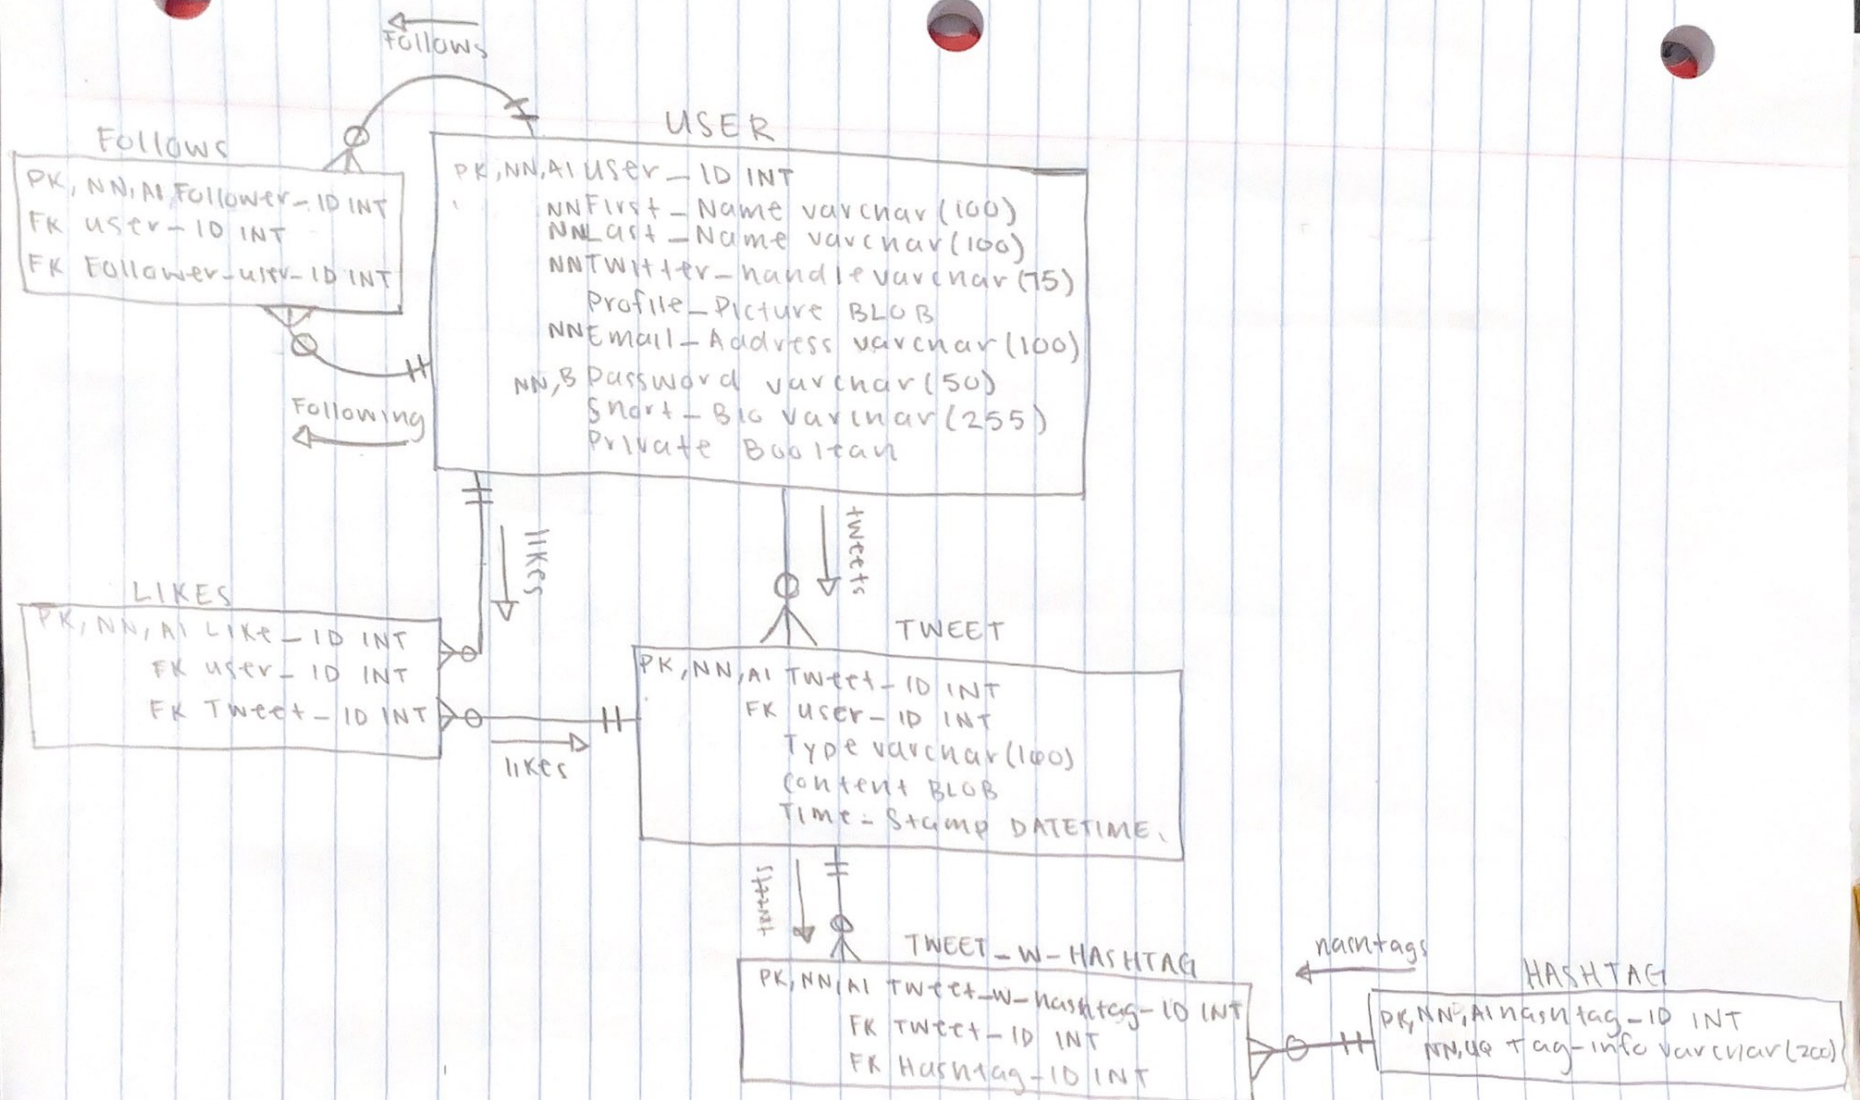 Follows
USER
Follows
PK, NN, AI Follower_ID INT
FK user_ID INT
FK Follower_user_ID INT
PK, NN, AI user_ID INT
NN First_Name varchar(100)
NN Last_Name varchar(100)
NN Twitter_handle varchar(75)
Profile_Picture BLOB
NN Email_Address varchar(100)
NN,B Password varchar(50)
Short_Bio varchar(255)
Private Boolean
Following
likes
tweets
LIKES
PK, NN, AI Like_ID INT
FK user_ID INT
FK Tweet_ID INT
likes
TWEET
PK, NN, AI Tweet_ID INT
FK user_ID INT
Type varchar(100)
Content BLOB
Time_Stamp DATETIME
tweets
TWEET_W_HASHTAG
PK, NN, AI Tweet_w_hashtag_ID INT
FK Tweet_ID INT
FK Hashtag_ID INT
hashtags
HASHTAG
PK, NN, AI hashtag_ID INT
NN, UQ Tag_info varchar(200)